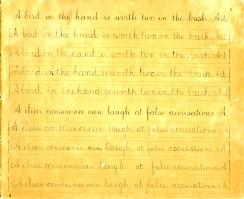 A bird in the hand is worth two in the bush. At
A bird in the hand is worth two in the bush. At
A bird in the hand is worth two in the bush. At
A bird in the hand is worth two in the bush. At
A bird in the hand is worth two in the bush. At
A clear conscience can laugh at false accusations A
A clear conscience can laugh at false accusations A
A clear conscience can laugh at false accusations A
A clear conscience can laugh at false accusations A
A clear conscience can laugh at false accusations A